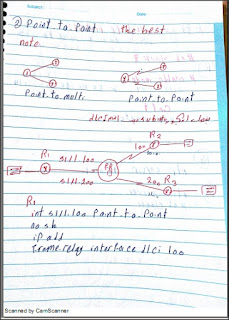 Subject:
Date
② Point to Point the best
note
Point-to-multi Point-to-Point
R2
100
R1 s1/1.100
FR
s1/1.200 200 R3
R1
int s1/1.100 Point-to-Point
no sh
ip add
Frame relay interface dlci 100
Scanned by CamScanner